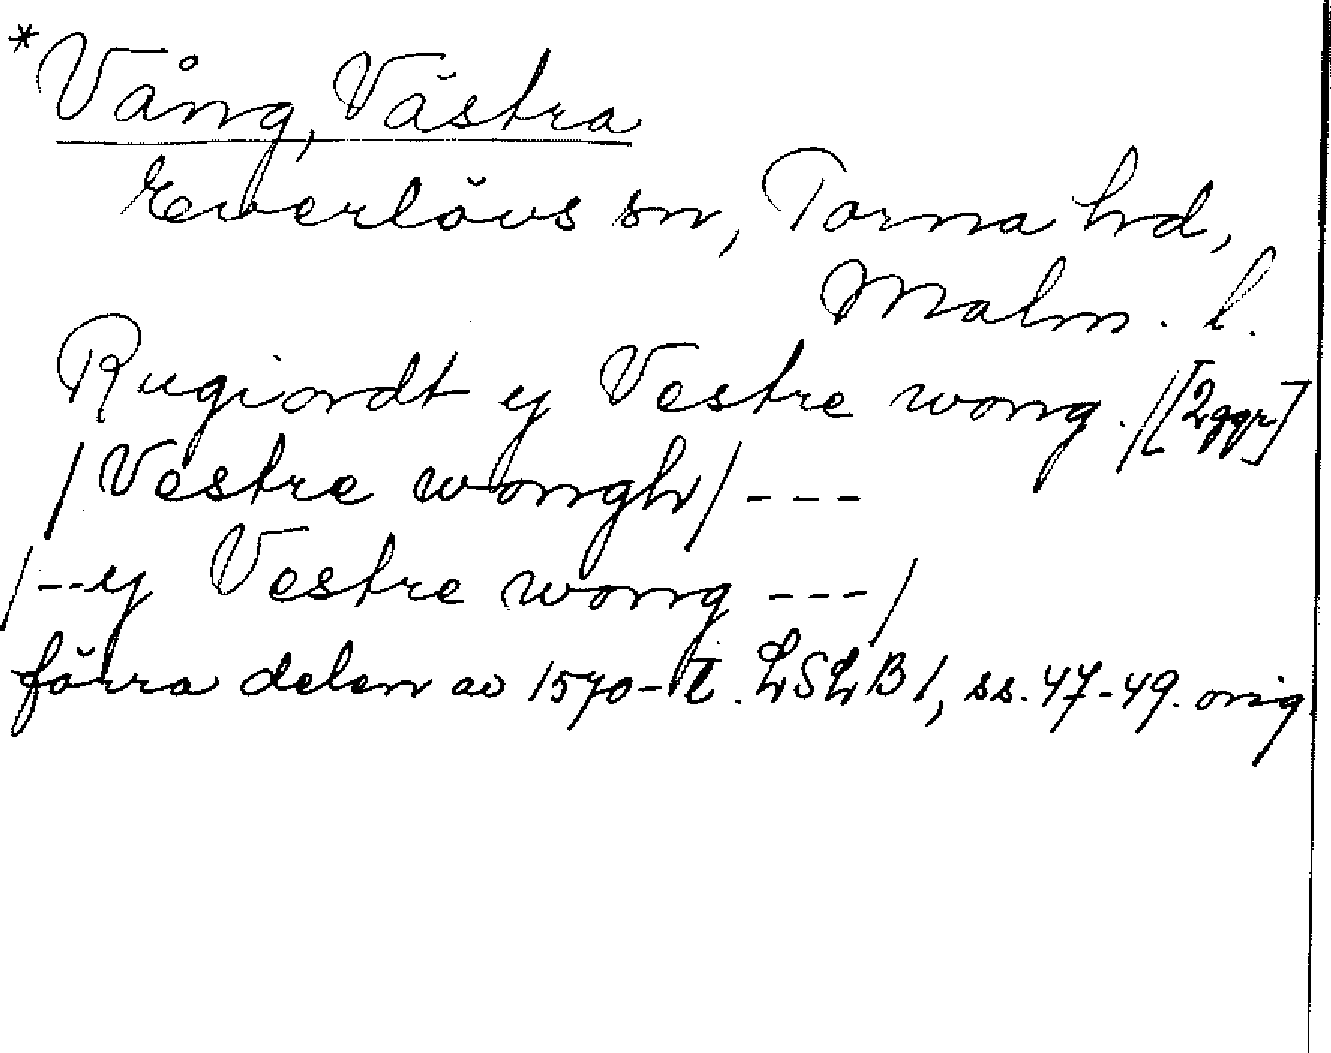 *Vång, Västra
Everlövs sn, Torna hd,
Malm. l.
Rugiordt y Vestre wong./[2ggr]
/Vestre wongh/---
/--y Vestre wong ---/
förra delen av 1570-t. LSLB1, ss. 47-49. orig